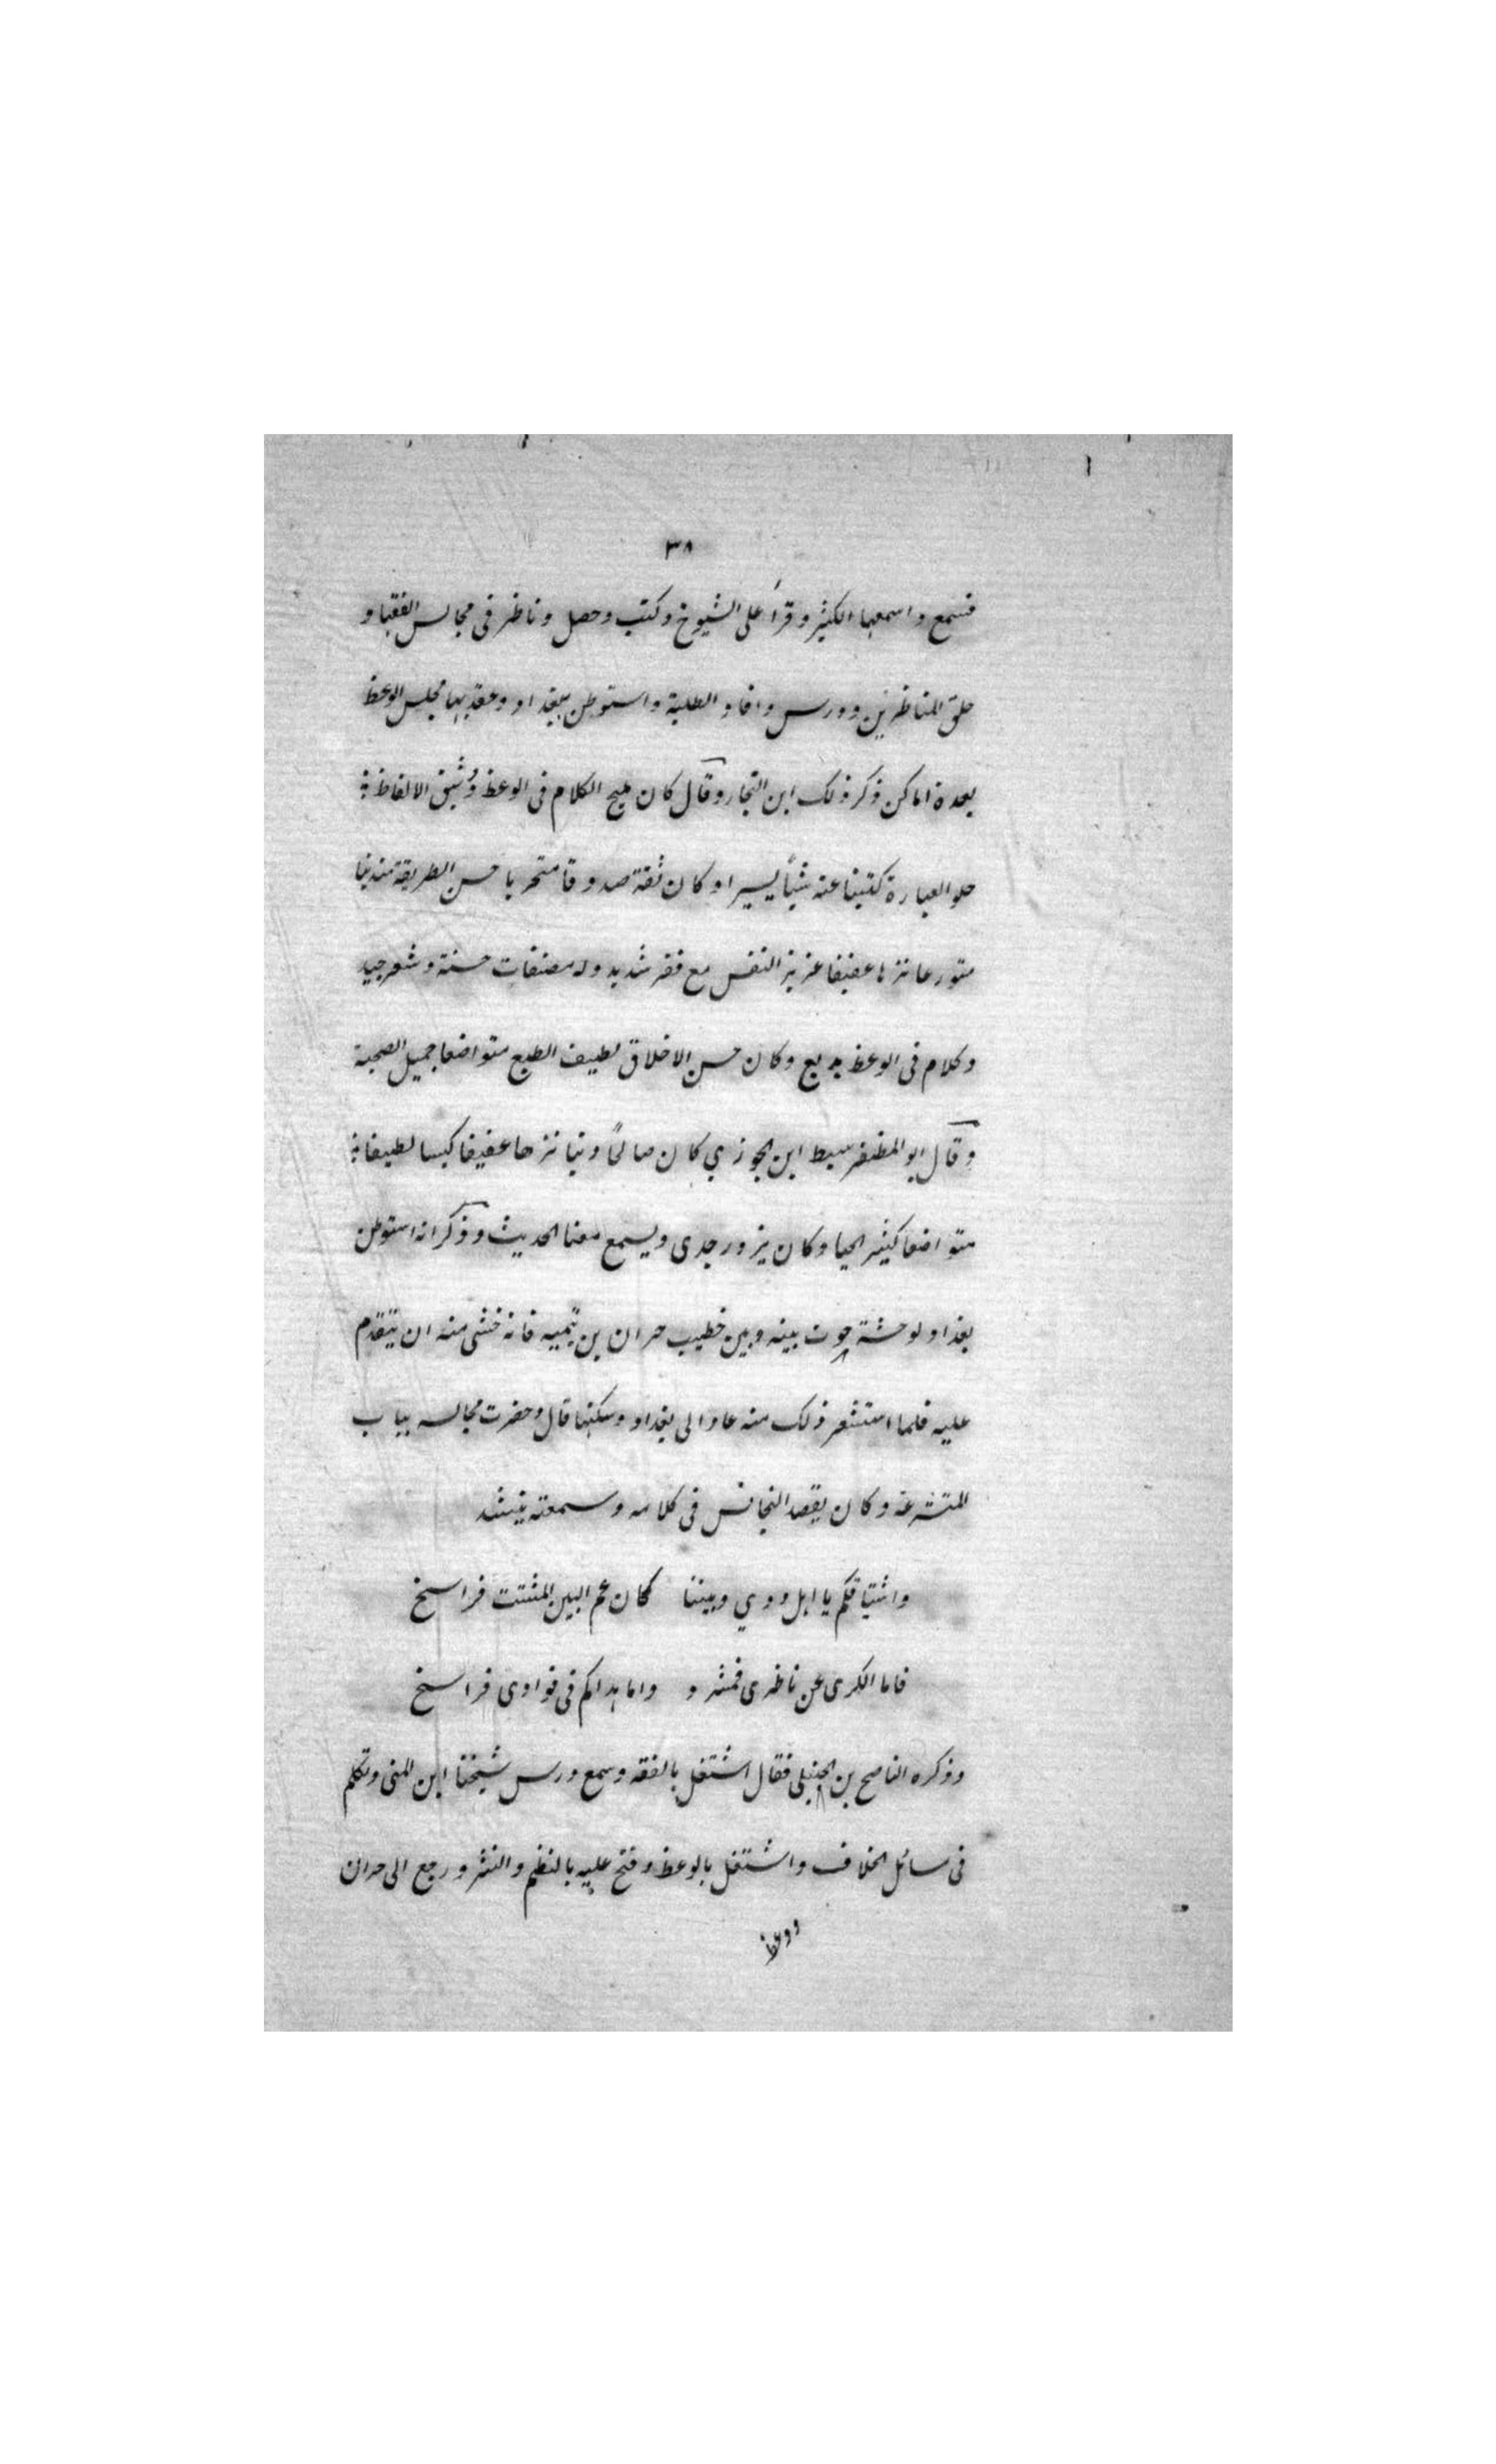 ٣٨
فسمع واسمعها الكثير وقرأ على الشيوخ وكتب وحصل وناظر فى مجالس الفقها و
حلق المناظرين ودرس وافاد الطلبة واستوطن ببغداد وعقد بها مجلس الوعظ
بعدة اماكن ذكر ذلك ابن النجار وقال كان مليح الكلام فى الوعظ وشيق الالفاظ
حلو العبارة كتبنا عنه شيأ يسيرا وكان ثقة صدوقا متحريا حسن الطريقة متدينا
متورعا نزها عفيفا عزيز النفس مع فقر شديد وله مصنفات حسنة وشعر جيد
وكلام فى الوعظ بديع وكان حسن الاخلاق لطيف الطبع متواضعا جميل الصحبة
وقال ابو المظفر سبط ابن الجوزي كان صالحًا دينا نزها عفيفا كيسا لطيفا
متواضعا كثير الحيا وكان يزور جدى ويسمع معنا الحديث وذكر انه استوطن
بغداد لوحشة جرت بينه وبين خطيب حران بن تيميه فانه خشى منه ان يتقدم
عليه فلما استشعر ذلك منه عاد الى بغداد وسكنها قال وحضرت مجالسه بباب
المتشرعة وكان يقصد التجانس فى كلامه وسمعته ينشد
واشتاقكم يا اهل ودي وبيننا كما زعم البين المشتت فراسخ
فاما الكرى عن ناظرى فمشرد واما هداكم فى فوادى فراسخ
وذكره الناصح بن الحنبلى فقال اشتغل بالفقه وسمع درس شيخنا ابن المنى وتكلم
فى مسائل الخلاف واشتغل بالوعظ وفتح عليه بالنظم والنثر ورجع الى حران
ووعظ